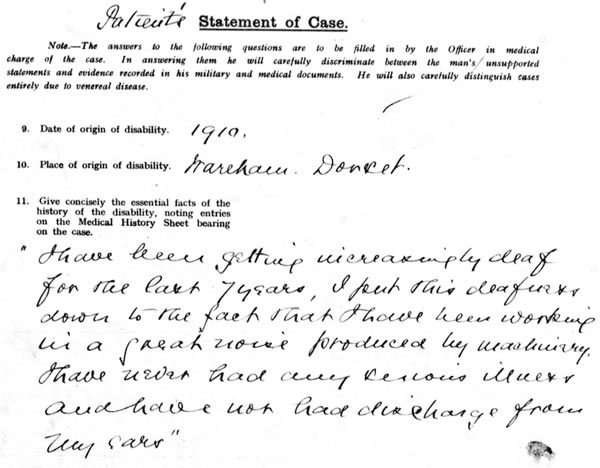 Patient's Statement of Case.
Note.—The answers to the following questions are to be filled in by the Officer in medical
charge of the case. In answering them he will carefully discriminate between the man's/unsupported
statements and evidence recorded in his military and medical documents. He will also carefully distinguish cases
entirely due to venereal disease.
9. Date of origin of disability. 1910.
10. Place of origin of disability. Wareham. Dorset.
11. Give concisely the essential facts of the
history of the disability, noting entries
on the Medical History Sheet bearing
on the case.
"I have been getting increasingly deaf
for the last 7 years, I put this deafness
down to the fact that I have been working
in a great noise produced by machinery.
I have never had any serious illness
and have not had discharge from
my ears"